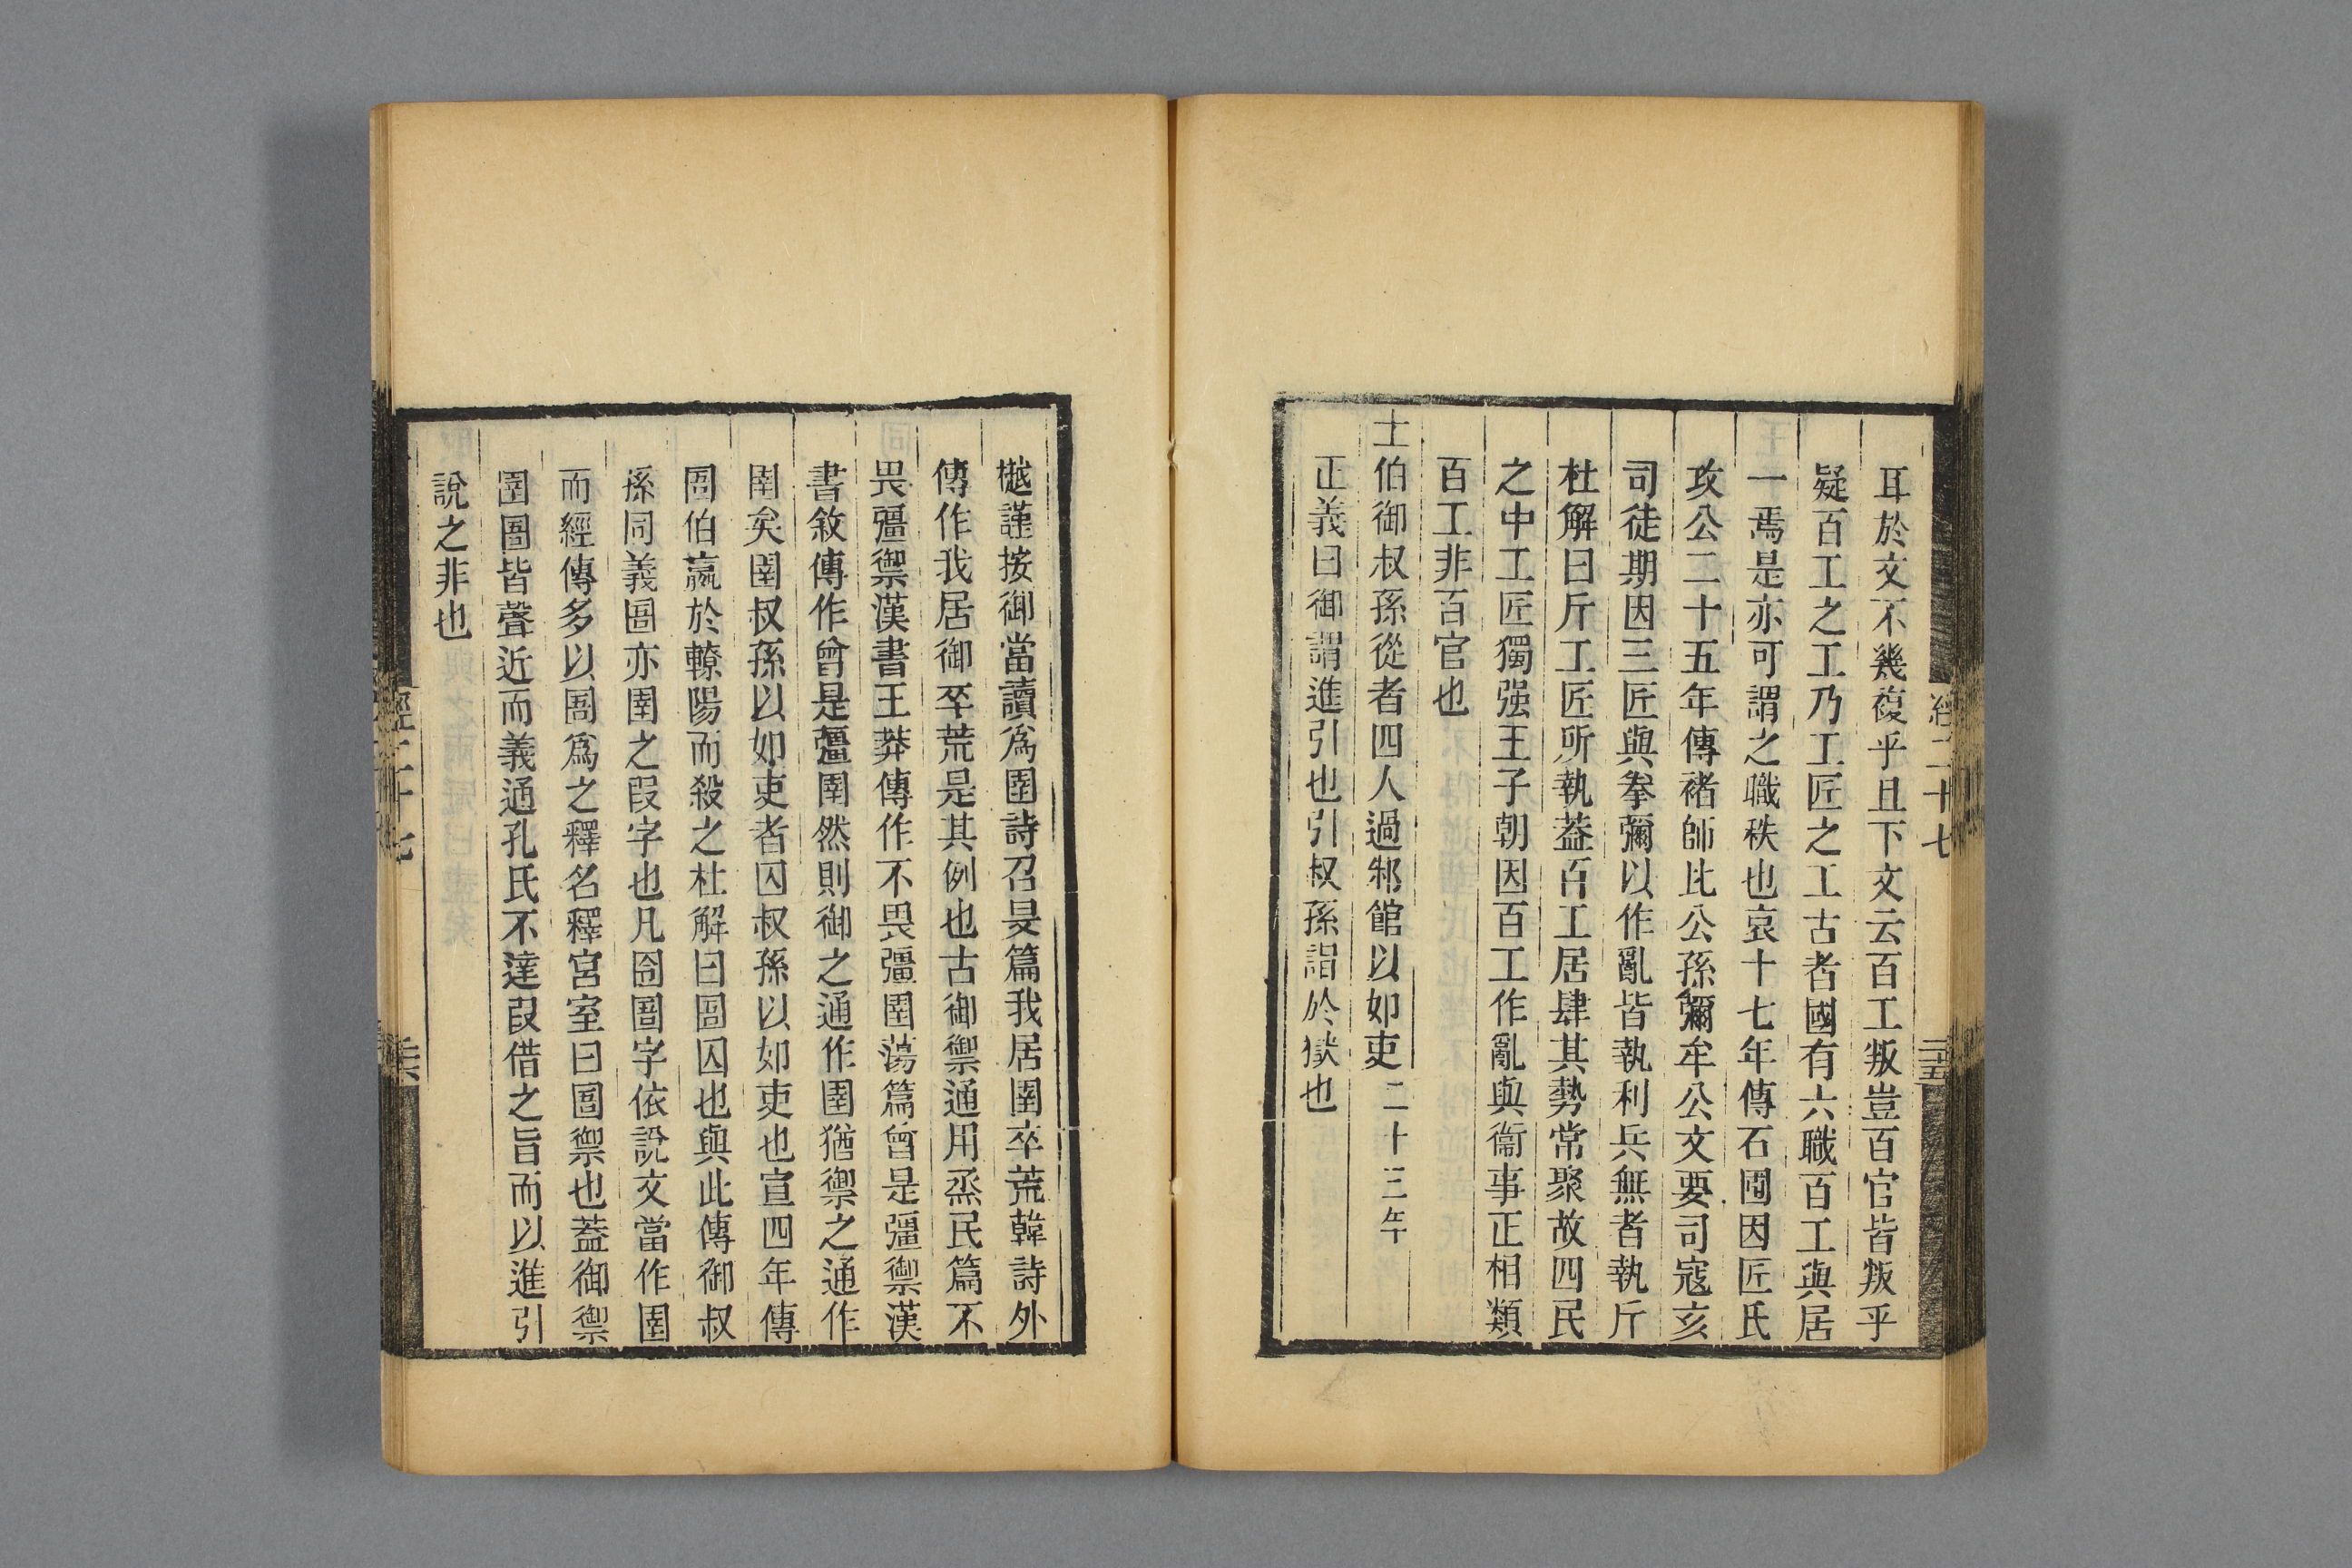 耳於文不幾複乎且下文云百工叛豈百官皆叛乎
疑百工之工乃工匠之工古者國有六職百工與居
一焉是亦可謂之職秩也哀十七年傳石圃因匠氏
攻公二十五年傳褚師比公孫彌牟公文要司寇亥
司徒期因三匠與拳彌以作亂皆執利兵無者執斤
杜解曰斤工匠所執葢百工居肆其勢常聚故四民
之中工匠獨强王子朝因百工作亂與衞事正相類
百工非百官也
士伯御叔孫從者四人過邾館以如吏二十三年
正義曰御謂進引也引叔孫詣於獄也
樾謹按御當讀爲圉詩召旻篇我居圉卒荒韓詩外
傳作我居御卒荒是其例也古御禦通用烝民篇不
畏彊禦漢書王莽傳作不畏彊圉蕩篇曾是彊禦漢
書敘傳作曾是彊圉然則御之通作圉猶禦之通作
圉矣圉叔孫以如吏者囚叔孫以如吏也宣四年傳
圄伯嬴於轑陽而殺之杜解曰圄囚也與此傳御叔
孫同義圄亦圉之叚字也凡囹圄字依說文當作圉
而經傳多以圄爲之釋名釋宮室曰圄禦也葢御禦
圉圄皆聲近而義通孔氏不達叚借之旨而以進引
說之非也
經二十七